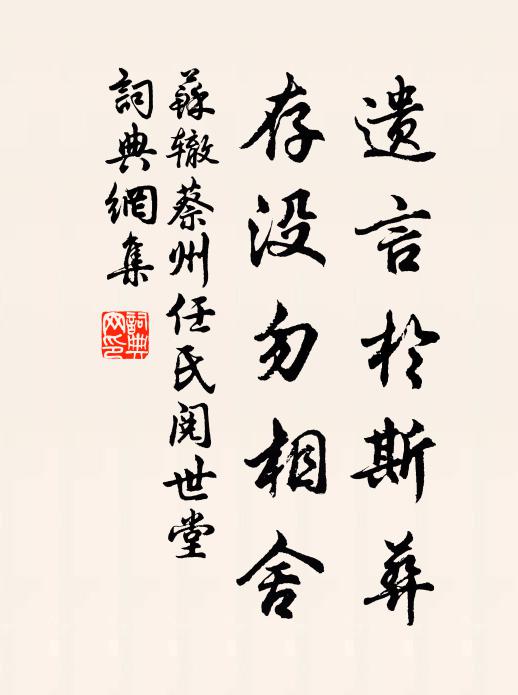 遗言於斯葬
存没勿相舍
蘇辙蔡州任氏阅世堂
詞典網集
詞典网印